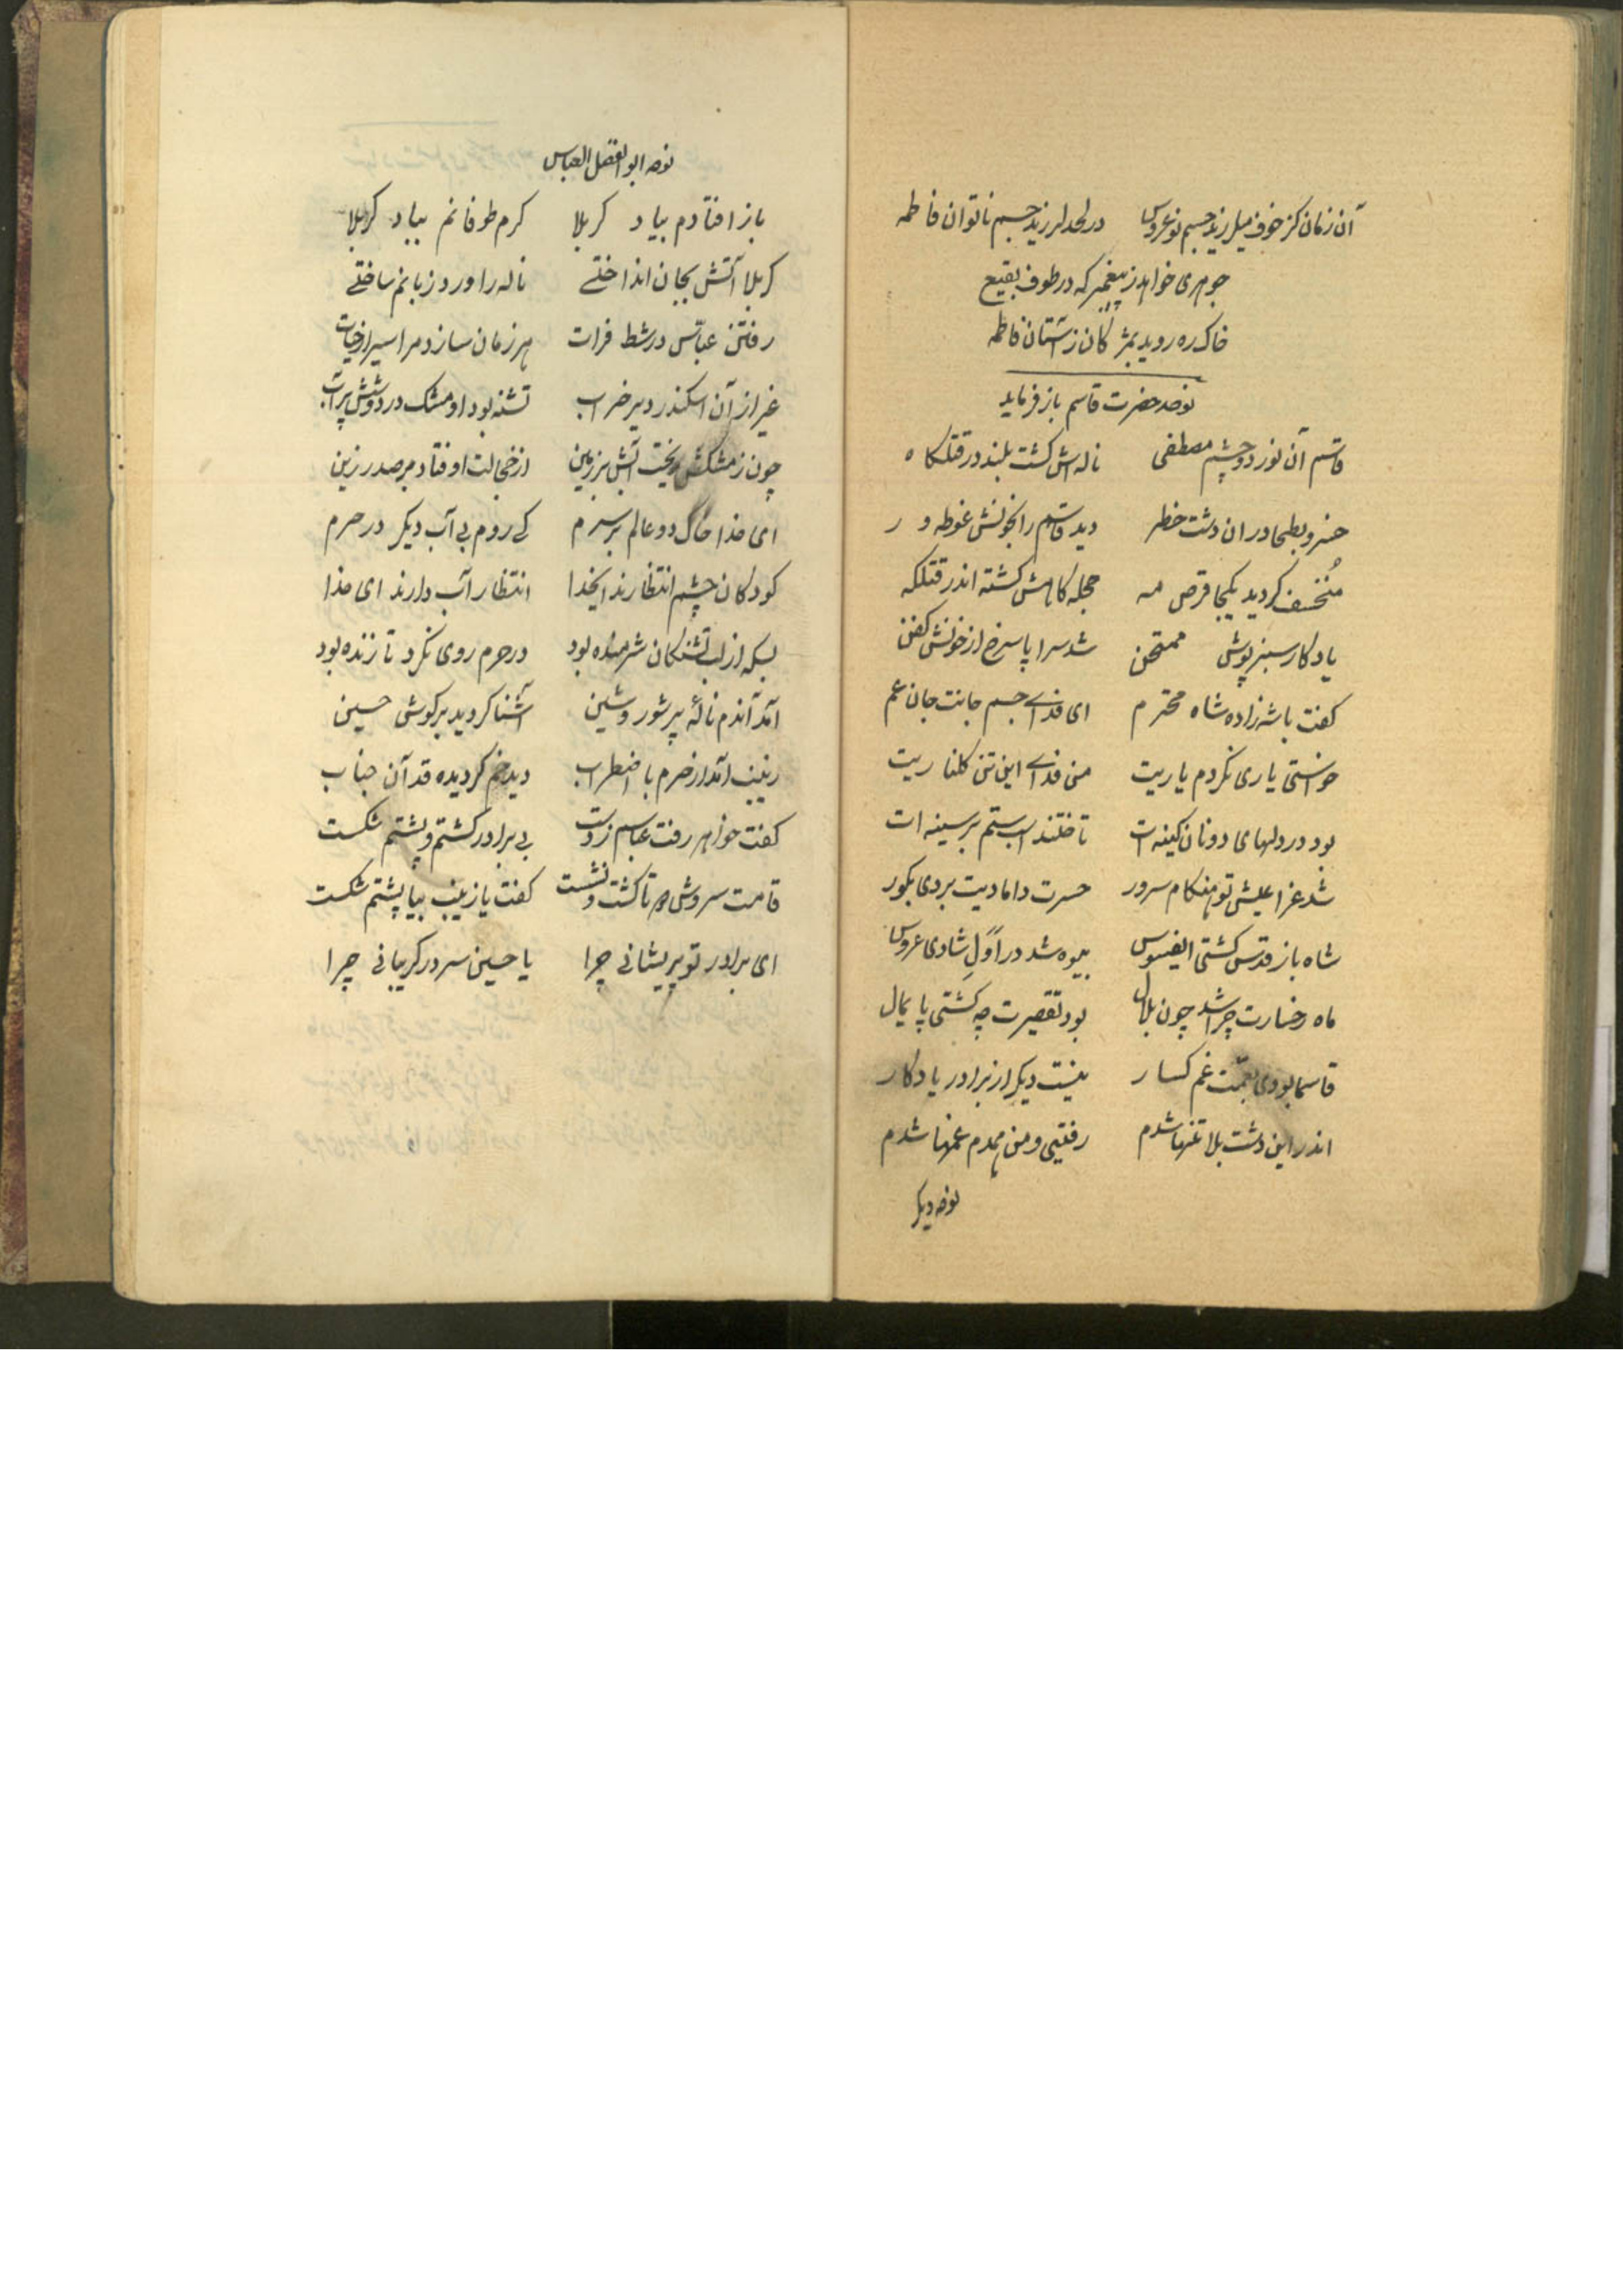 آن زمان کز خوف میلرزید جسم نوعروس در لحد لرزید جسم ناتوان فاطمه
جوهری خواهد ز پیغمبر که در طوف بقیع
خاک ره روبد بمژگان ز آستان فاطمه
نوحه حضرت قاسم باز فرماید
قاسم آن نور دو چشم مصطفی ناله اش گشت بلند در قتلگاه
خسرو بطحا در ان دشت خطر دید قاسم را بخونش غوطه ور
مُنخسف گردید یکجا قرص مه حجله گاهش گشته اندر قتلگه
یادگار سبز پوش ممتحن شد سراپا سرخ از خونش کفن
گفت با شهزاده شاه محترم ای فدای جسم و جانت جان عم
خواستی یاری نکردم یاریت من فدای این تن گلناریت
بود در دلهای دونان کینه ات تاختند اسب ستم بر سینه ات
شد عزا عیش تو هنگام سرور حسرت دامادیت بردی بگور
شاه باز قدس کشتی ایفسوس بیوه شد در اوّلِ شادی عروس
ماه رخسارت چرا شد چون هلال بود تقصیرت چه گشتی پایمال
قاسما بودی بعمّت غم گسار نیست دیگر از برادر یادگار
اندر این دشت بلا تنها شدم رفتی و من همدم غمها شدم
نوحه دیگر
نوحه ابو الفضل العباس
باز افتادم بیاد کربلا کرم طوفانم بیاد کربلا
کربلا آتش بجان انداختے ناله را ورد زبانم ساختے
رفتن عبّاس در شط فرات هر زمان سازد مرا سیر از حیات
غیر از آن اسکندر دیر خراب تشنه بود او مشک در دوشش پر آب
چون ز مشکش ریخت آبش بر زمین از خجالت اوفتاد بر صدر زین
ای خدا خاک دو عالم بر سرم کے روم بی آب دیگر در حرم
کودکان چشم انتظارند ایخدا انتظار آب دارند ای خدا
بسکه از لب تشنگان شرمنده بود در حرم روی نکرد تا زنده بود
آمد آندم نالهٔ پر شور و شین آشنا گردید بر گوش حسین
زینب آمد از حرم با اضطراب دید خم گردیده قد آن جناب
گفت خواهر رفت عباسم ز دست بی برادر گشتم و پشتم شکست
قامت سروش دو تا گشت و نشست گفت یا زینب بیا پشتم شکست
ای برادر تو پریشانی چرا یا حسین سر در گریبانی چرا